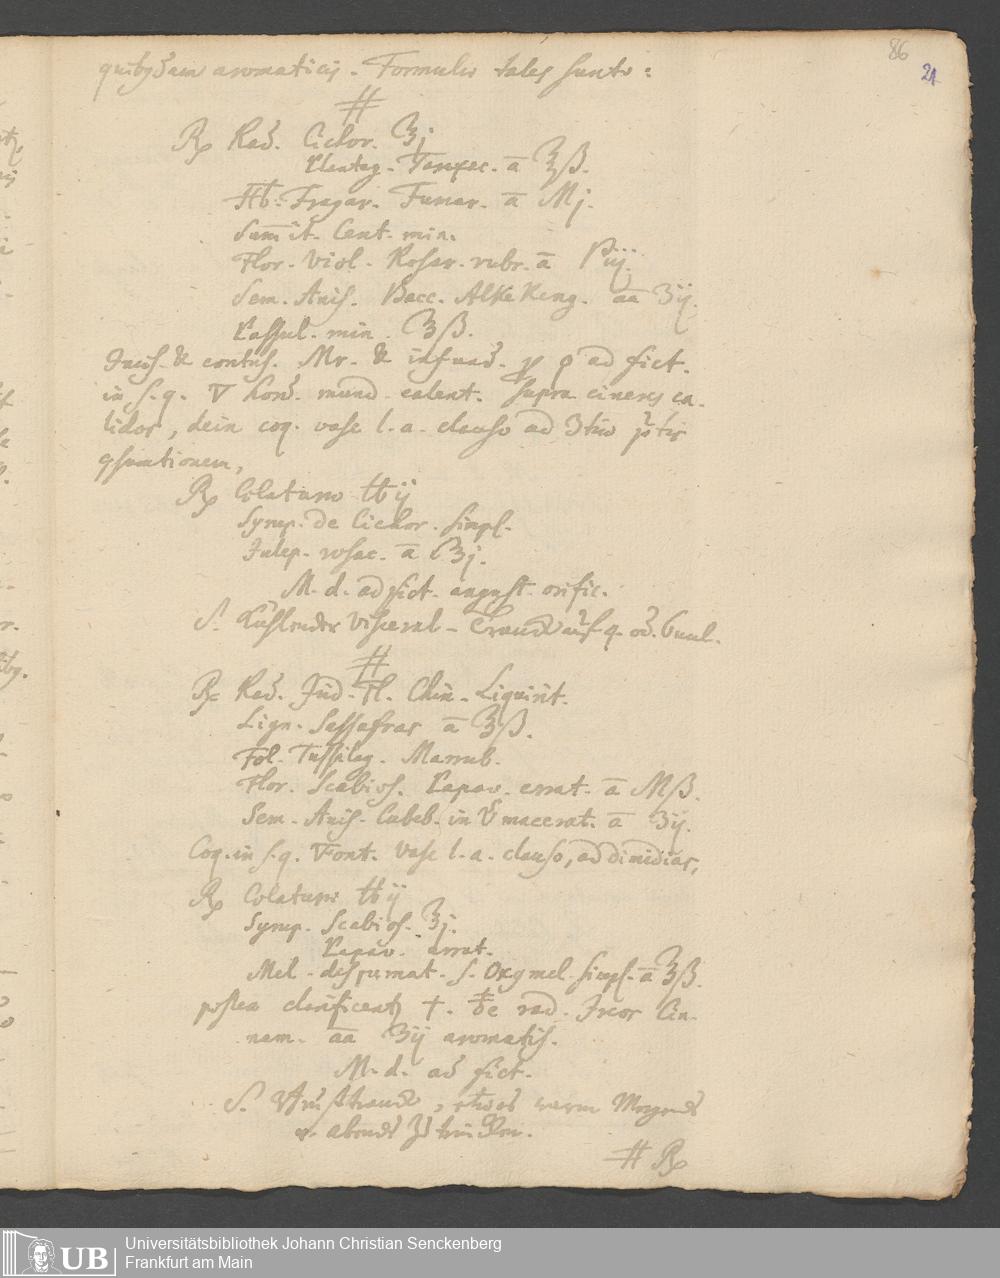 86
21
quibusdam aromaticis. Formulae tales sunto:
#
℞ Rad. Cichor. ℥j
Plantag. Taraxac. ā ℥ß.
Hb. Fragar. Fumar. ā Mj.
Summit. Cent. min.
Flor. Viol. Rosar. rubr. ā Piij.
Sem. Anis. Bacc. Alkekeng. āā ʒij.
Passul. min. ℥ß.
Incis. & contus. Mr. & infund. ad fict.
in s. q. ▽ hord. mund. calent. supra cineres ca-
lidos, dein coq. vase l. a. clauso ad 3tiae ptis
℞ Colaturae ℔ij
Syrup. de Cichor. simpl.
Julep. rosac. ā ℥j.
M. d. ad fict. angust. orific.
S. Kühlender Visceral-Tranck auf
#
℞ Rad. Chin. Liquirit.
Lign. Sassafras ā ℥ß.
Fol. Tussilag. Marrub.
Flor. Scabios. Papav. errat. ā Mß.
Sem. Anis. Cubeb. in macerat. ā ʒij.
Coq. in s. q. ▽ Font. vase l. a. clauso, ad dimidias,
℞ Colaturae ℔ij
Syrup. Scabios. ℥j.
Papav. errat.
Mel. despumat. s. Oxymel. simpl. ā ℥ß.
postea clarificent. rad. Cin-
nam. āā ʒij aromatis.
M. d. ad fict.
S. Brusttranck, etwas warm Morgends
u. abends zu trincken.
# ℞
UB
Universitätsbibliothek Johann Christian Senckenberg
Frankfurt am Main